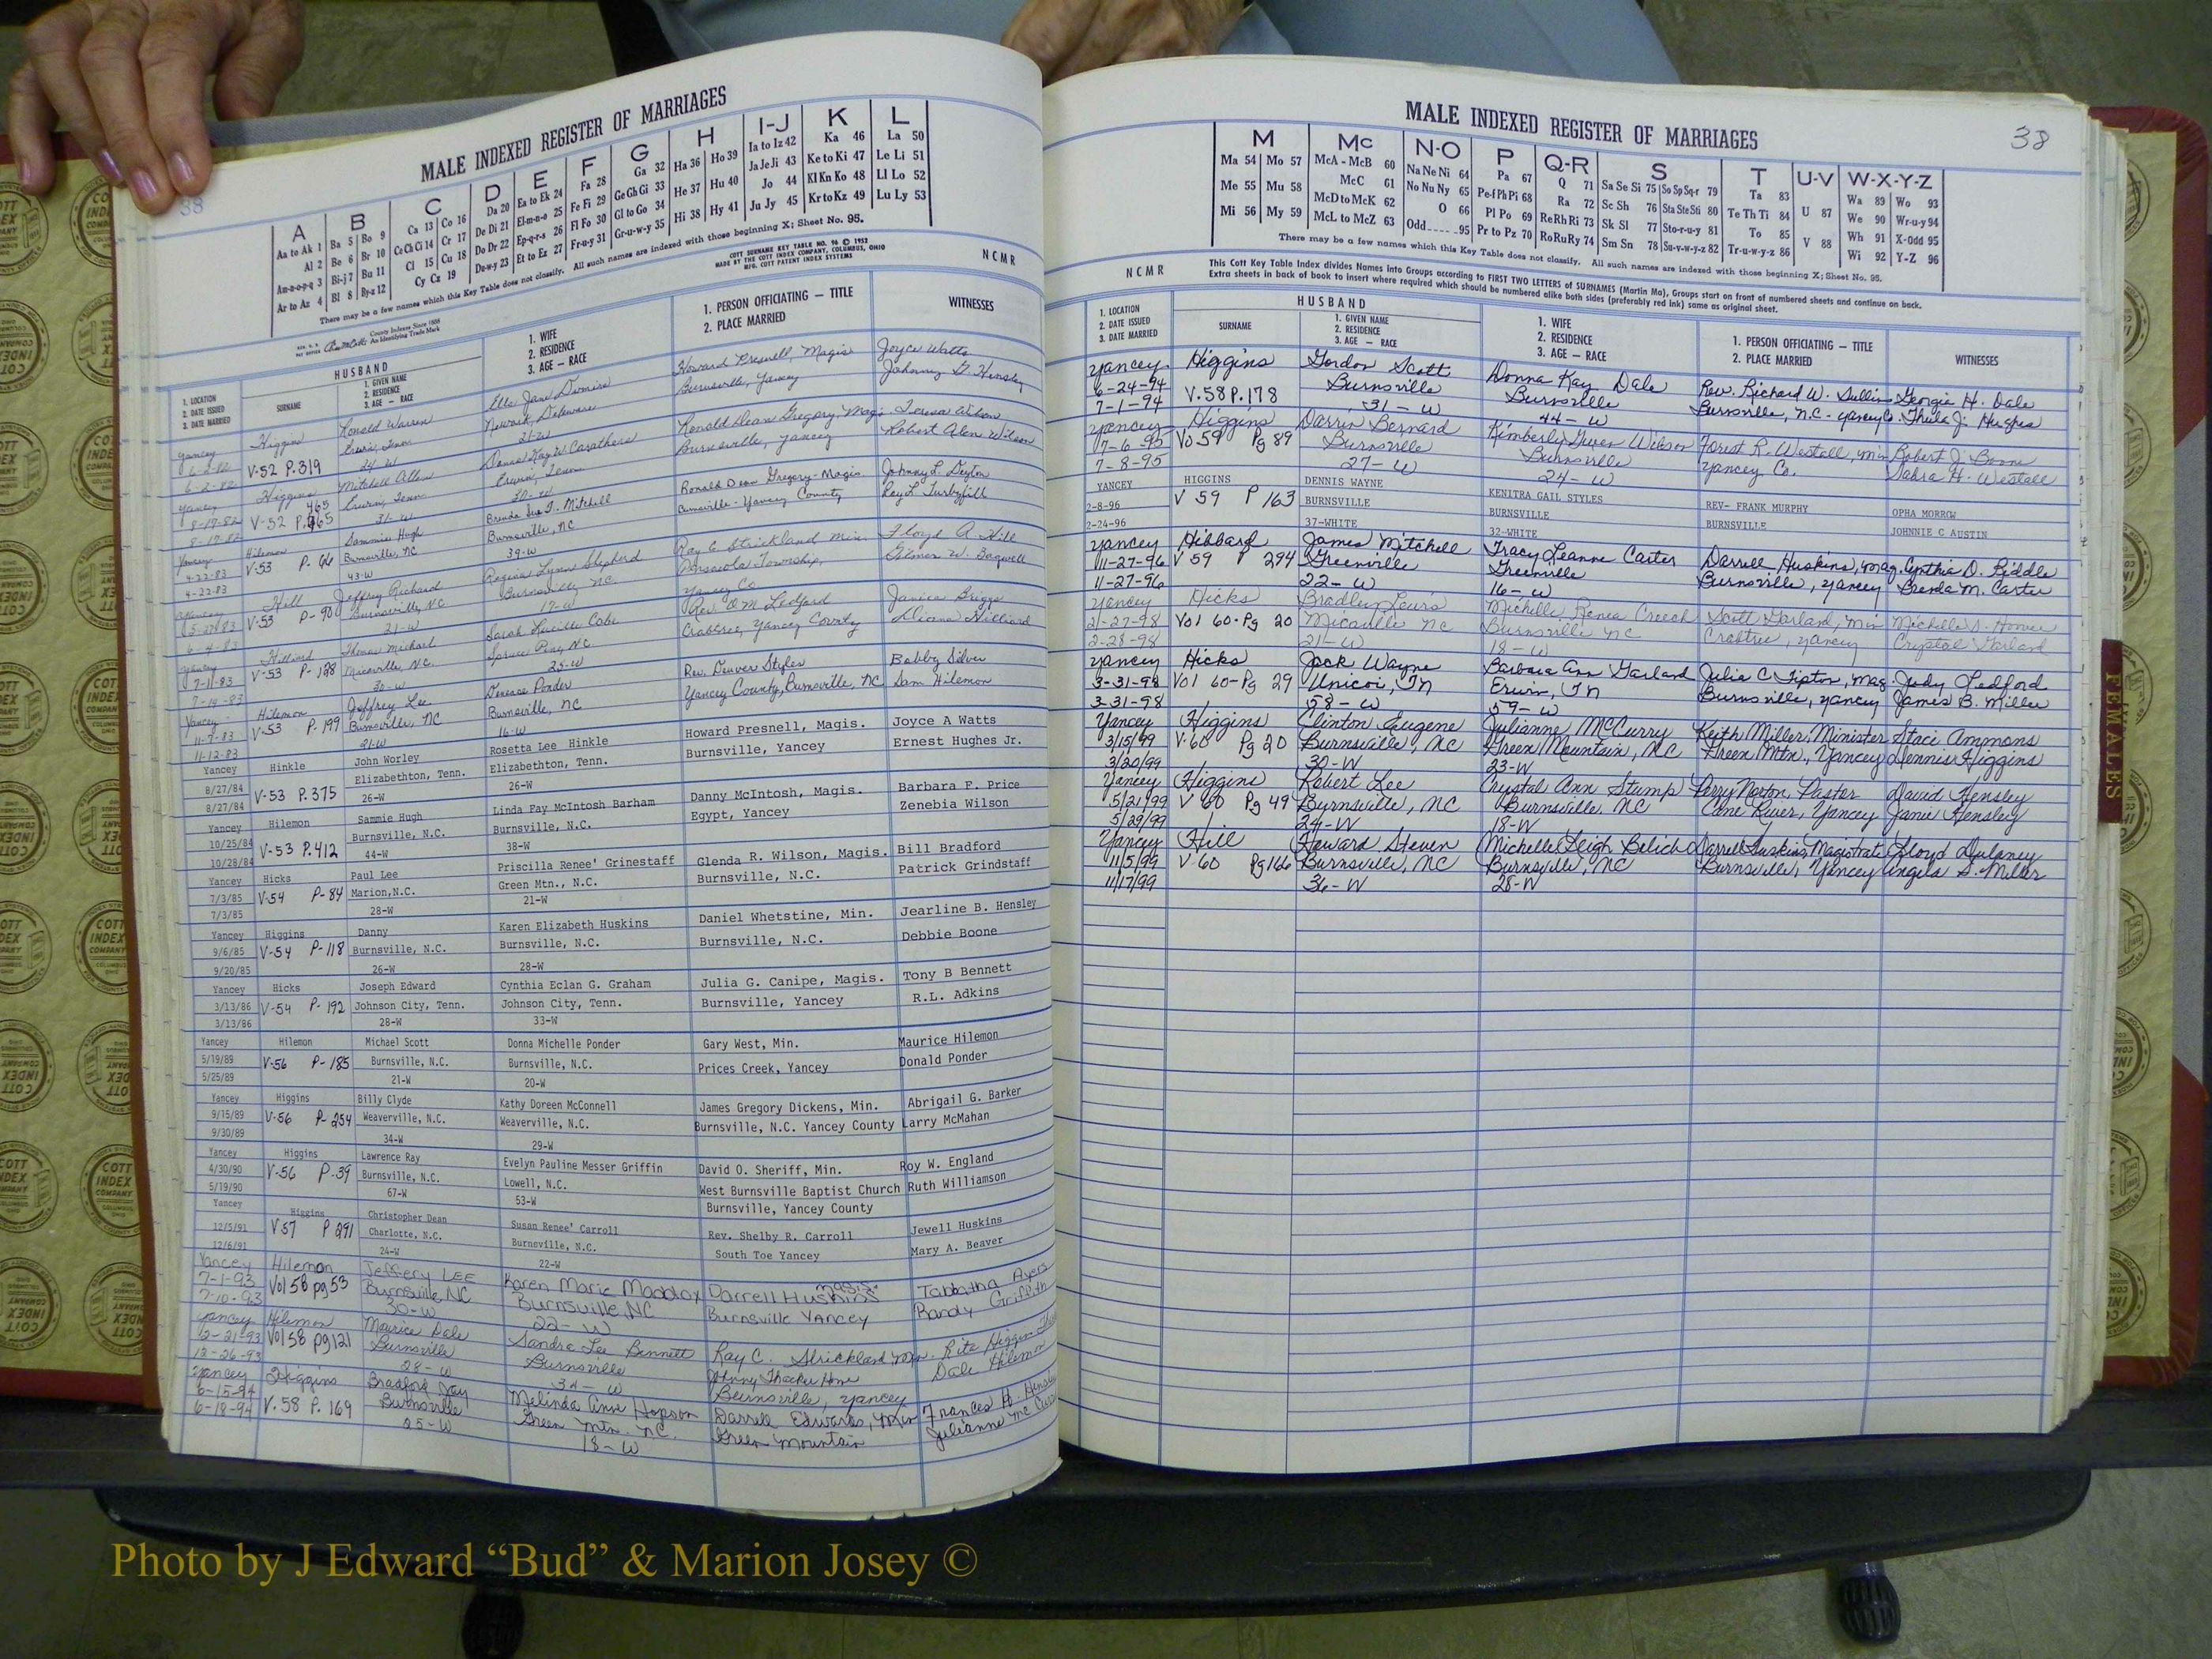 MALE INDEXED REGISTER OF MARRIAGES
38
A B C D E F G H I-J K L
Aa to Ak 1 Ba 5 Bo 9 Ca 13 Co 16 Da 20 Ea to Ek 24 Fa 28 Ga 32 Ha 36 Ho 39 Ia to Iz 42 Ka 46 La 50
Al 2 Be 6 Br 10 Ce Ch Ci 14 Cr 17 De Di 21 El-m-n-o 25 Fe Fi 29 Ge Gh Gi 33 He 37 Hu 40 Ja Je Ji 43 Ke to Ki 47 Le Li 51
Am-n-o-p-q 3 Bi-j 7 Bu 11 Cl 15 Cu 18 Do Dr 22 Ep-q-r-s 26 Fl Fo 30 Gl to Go 34 Hi 38 Hy 41 Jo 44 Kl Kn Ko 48 Ll Lo 52
Ar to Az 4 Bl 8 By-z 12 Cy Cz 19 Du-w-y 23 Et to Ez 27 Fr-u-y 31 Gr-u-w-y 35 Ju Jy 45 Kr to Kz 49 Lu Ly 53
There may be a few names which this Key Table does not classify. All such names are indexed with those beginning X; Sheet No. 95.
COTT SURNAME KEY TABLE NO. 96 © 1952
MADE BY THE COTT INDEX COMPANY, COLUMBUS, OHIO
MFG. COTT PATENT INDEX SYSTEMS
NCMR
County Indexes Since 1888
An Identifying Trade Mark
HUSBAND
1. LOCATION
2. DATE ISSUED
3. DATE MARRIED
SURNAME
1. GIVEN NAME
2. RESIDENCE
3. AGE — RACE
1. WIFE
2. RESIDENCE
3. AGE — RACE
1. PERSON OFFICIATING — TITLE
2. PLACE MARRIED
WITNESSES
Yancey Higgins Ronald Warren Ella Jane Howard Presnell, Magis Joyce Watts
V-52 P.319 Newark, Delaware Burnsville, Yancey Johnny G. Hensley
6-2-82 24-W 21-W
Yancey Higgins Mitchell Allen Ronald Dean Gregory, Mag. Teresa Wilson
8-17-82 V-52 P.465 465 Erwin, Tenn Burnsville, Yancey Robert Alen Wilson
8-17-82 31-W 30-W
Yancey Hilemon Sammie Hugh Brenda Sue T. Mitchell Ronald Dean Gregory-Magis Johnny L. Deyton
4-22-83 V-53 P-66 Burnsville, NC Burnsville, NC Burnsville-Yancey County Ray L. Turbyfill
4-22-83 43-W 39-W
Yancey Hill Jeffrey Richard Regina Lynn Shepherd Ray C Strickland Min Floyd A. Hill
5-27-83 V-53 P-90 Burnsville, NC Burnsville, NC Pensacola Township, W. Bagwell
6-4-83 21-W 17-W Yancey Co
Yancey Hilliard Thomas Michael Sarah Lucille Cobe Rev. O.M. Ledford Janice Briggs
7-11-83 V-53 P-128 Micaville, NC. Spruce Pine, NC. Crabtree, Yancey County Dianna Hilliard
7-14-83 30-W 25-W
Yancey Hilemon Jeffrey Lee Denease Ponder Rev. Denver Styles Bobby Silver
11-7-83 V-53 P-199 Burnsville, NC Burnsville, NC Yancey County, Burnsville, NC Sam Hilemon
11-12-83 21-W 16-W
Yancey Hinkle John Worley Rosetta Lee Hinkle Howard Presnell, Magis. Joyce A Watts
8/27/84 V-53 P.375 Elizabethton, Tenn. Elizabethton, Tenn. Burnsville, Yancey Ernest Hughes Jr.
8/27/84 26-W 26-W
Yancey Hilemon Sammie Hugh Linda Fay McIntosh Barham Danny McIntosh, Magis. Barbara F. Price
10/25/84 V-53 P.412 Burnsville, N.C. Burnsville, N.C. Egypt, Yancey Zenebia Wilson
10/28/84 44-W 38-W
Yancey Hicks Paul Lee Priscilla Renee' Grinestaff Glenda R. Wilson, Magis. Bill Bradford
7/3/85 V-54 P-84 Marion,N.C. Green Mtn., N.C. Burnsville, N.C. Patrick Grindstaff
7/3/85 28-W 21-W
Yancey Higgins Danny Karen Elizabeth Huskins Daniel Whetstine, Min. Jearline B. Hensley
9/6/85 V-54 P-118 Burnsville, N.C. Burnsville, N.C. Burnsville, N.C. Debbie Boone
9/20/85 26-W 28-W
Yancey Hicks Joseph Edward Cynthia Eclan G. Graham Julia G. Canipe, Magis. Tony B Bennett
3/13/86 V-54 P-192 Johnson City, Tenn. Johnson City, Tenn. Burnsville, Yancey R.L. Adkins
3/13/86 28-W 33-W
Yancey Hilemon Michael Scott Donna Michelle Ponder Gary West, Min. Maurice Hilemon
5/19/89 V-56 P-185 Burnsville, N.C. Burnsville, N.C. Prices Creek, Yancey Donald Ponder
5/25/89 21-W 20-W
Yancey Higgins Billy Clyde Kathy Doreen McConnell James Gregory Dickens, Min. Abrigail G. Barker
9/15/89 V-56 P-254 Weaverville, N.C. Weaverville, N.C. Burnsville, N.C. Yancey County Larry McMahan
9/30/89 34-W 29-W
Yancey Higgins Lawrence Ray Evelyn Pauline Messer Griffin David O. Sheriff, Min. Roy W. England
4/30/90 V-56 P.39 Burnsville, N.C. Lowell, N.C. West Burnsville Baptist Church Ruth Williamson
5/19/90 67-W 53-W Burnsville, Yancey County
Yancey Higgins Christopher Dean Susan Renee' Carroll Rev. Shelby R. Carroll Jewell Huskins
12/5/91 V57 P 291 Charlotte, N.C. Burnsville, N.C. South Toe Yancey Mary A. Beaver
12/6/91 24-W 22-W
Yancey Hilemon Jeffery LEE Karen Marie Maddox Darrell Huskins magis. Tabbatha Ayers
7-1-93 Vol 58 pg 53 Burnsville NC Burnsville, NC Burnsville Yancey Randy Griffith
7-10-93 30-W 22-W
Yancey Hilemon Maurice Dale Sandra Lee Bennett Ray C. Strickland Min. Rita Higgin
12-21-93 Vol 58 pg 121 Burnsville Burnsville Johnny Thacker Home Dale Hilemon
12-26-93 28-W 34-W Burnsville, Yancey
Yancey Higgins Bradford Jay Melinda Ann Hopson Darrell Edwards, Min Frances H.
6-15-94 V. 58 P. 169 Burnsville Green Mtn. NC. Green Mountain Julianne
6-18-94 25-W 18-W
MALE INDEXED REGISTER OF MARRIAGES
38
M Mc N-O P Q-R S T U-V W-X-Y-Z
Ma 54 Mo 57 McA - McB 60 Na Ne Ni 64 Pa 67 Q 71 Sa Se Si 75 So Sp Sq-r 79 Ta 83 Wa 89 Wo 93
Me 55 Mu 58 McC 61 No Nu Ny 65 Pe-f Ph Pi 68 Ra 72 Sc Sh 76 Sta Ste Sti 80 Te Th Ti 84 U 87 We 90 Wr-u-y 94
Mi 56 My 59 McD to McK 62 O 66 Pl Po 69 Re Rh Ri 73 Sk Sl 77 Sto-r-u-y 81 To 85 Wh 91 X-Odd 95
McL to McZ 63 Odd 95 Pr to Pz 70 Ro Ru Ry 74 Sm Sn 78 Su-v-w-y-z 82 Tr-u-w-y-z 86 V 88 Wi 92 Y-Z 96
There may be a few names which this Key Table does not classify. All such names are indexed with those beginning X; Sheet No. 95.
NCMR
This Cott Key Table Index divides Names into Groups according to FIRST TWO LETTERS of SURNAMES (Martin Ma), Groups start on front of numbered sheets and continue on back.
Extra sheets in back of book to insert where required which should be numbered alike both sides (preferably red ink) same as original sheet.
HUSBAND
1. LOCATION
2. DATE ISSUED
3. DATE MARRIED
SURNAME
1. GIVEN NAME
2. RESIDENCE
3. AGE — RACE
1. WIFE
2. RESIDENCE
3. AGE — RACE
1. PERSON OFFICIATING — TITLE
2. PLACE MARRIED
WITNESSES
Yancey Higgins Gordon Scott Donna Kay Dale Rev. Richard W. Sullins Georgia H. Dale
6-24-94 V.58 P.178 Burnsville Burnsville Burnsville, N.C - Yancey Co. Thula J. Hughes
7-1-94 31-W 44-W
Yancey Higgins Darrin Bernard Kimberly Gwen Wilson Forest R. Westall, Min Robert J. Boone
7-6-95 Vo 59 Pg 89 Burnsville Burnsville Yancey Co. Sabra H. Westall
7-8-95 27-W 24-W
YANCEY HIGGINS DENNIS WAYNE KENITRA GAIL STYLES REV- FRANK MURPHY OPHA MORROW
2-8-96 V 59 P 163 BURNSVILLE BURNSVILLE BURNSVILLE JOHNNIE C AUSTIN
2-24-96 37-WHITE 32-WHITE
Yancey Hibbard James Mitchell Tracy Leanne Carter Darrell Huskins, Mag. Cynthia D. Riddle
11-27-96 V 59 P 294 Greenville Greenville Burnsville, Yancey Brenda M. Carter
11-27-96 22-W 16-W
Yancey Hicks Bradley Lewis Michelle Renea Creech Scott Garland, Min Michelle
2-27-98 Vol 60-Pg 20 Micaville NC Burnsville NC Crabtree, Yancey Crystal Garland
2-28-98 21-W 18-W
Yancey Hicks Jack Wayne Barbara Ann Garland Julia C Tipton, Mag. Judy Ledford
3-31-98 Vol 60-Pg 29 Unicoi, TN Erwin, TN Burnsville, Yancey James B. Miller
3-31-98 58-W 59-W
Yancey Higgins Clinton Eugene Julianne McCurry Keith Miller, Minister Staci Ammons
3/15/99 V-60 Pg 20 Burnsville, NC Green Mountain, NC Green Mtn., Yancey Dennis Higgins
3/20/99 30-W 23-W
Yancey Higgins Robert Lee Crystal Ann Stump Perry Norton, Pastor David Hensley
5/21/99 V 60 Pg 49 Burnsville, NC Burnsville, NC Cane River, Yancey Janie Hensley
5/29/99 24-W 18-W
Yancey Hill Howard Steven Michelle Leigh Belich Darrell Huskins, Magistrate Lloyd Dulaney
11/5/99 V-60 Pg 166 Burnsville, NC Burnsville, NC Burnsville, Yancey Angela S. Miller
11/17/99 36-W 28-W
FEMALES
Photo by J Edward “Bud” & Marion Josey ©